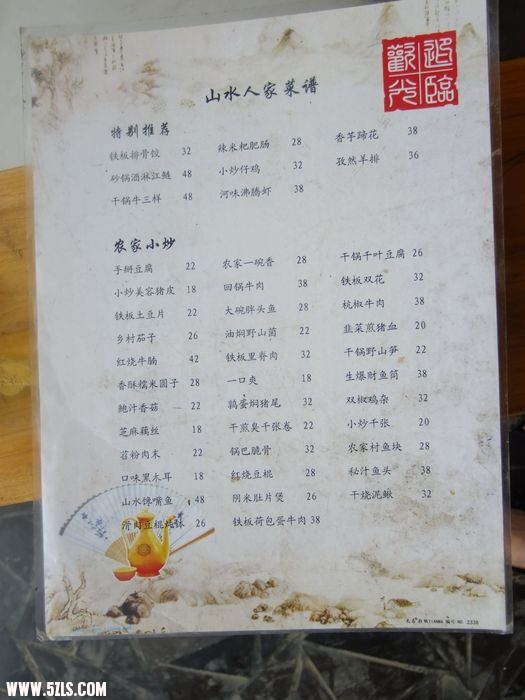 山水人家菜谱
歡迎光臨
特别推荐
铁板排骨饺 32 辣米粑肥肠 28 香芋蹄花 38
砂锅酒淋江鲢 48 小炒仔鸡 32 孜然羊排 36
干锅牛三样 48 河味沸腾虾 38
农家小炒
手掰豆腐 22 农家一碗香 28 干锅千叶豆腐 26
小炒美容猪皮 18 回锅牛肉 38 铁板双花 32
铁板土豆片 22 大碗胖头鱼 28 杭椒牛肉 38
乡村茄子 26 油焖野山菌 22 韭菜煎猪血 20
红烧牛腩 42 铁板里脊肉 32 干锅野山笋 22
香酥糯米圆子 28 一口爽 18 生爆财鱼筒 38
鲍汁香菇 22 鹑蛋焖猪尾 32 双椒鸡杂 32
芝麻藕丝 18 干煎臭千张卷 22 小炒千张 20
苕粉肉末 22 锅巴脆骨 32 农家村鱼块 28
口味黑木耳 18 红烧豆棍 28 秘汁鱼头 38
山水馋嘴鱼 48 阴米肚片煲 26 干烧泥鳅 32
滑肉豆棍炖钵 26 铁板荷包蛋牛肉 38
WWW.5ZLS.COM